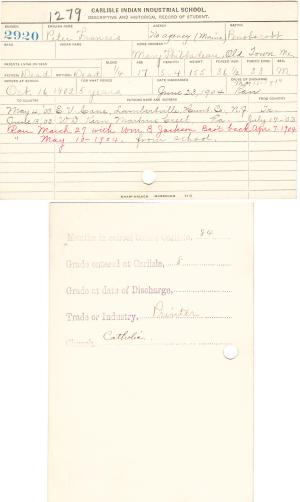 1279
CARLISLE INDIAN INDUSTRIAL SCHOOL.
DESCRIPTIVE AND HISTORICAL RECORD OF STUDENT.
NUMBER ENGLISH NAME AGENCY NATION
2920 Peter Francis No agency (Maine) Penobscot
BAND INDIAN NAME HOME ADDRESS
Mary Old Town Me.
PARENTS LIVING OR DEAD BLOOD AGE HEIGHT WEIGHT FORCED INSP. FORCED EXPR. SEX
FATHER Dead MOTHER Dead 1/4 17 155 33 M
ARRIVED AT SCHOOL FOR WHAT PERIOD DATE DISCHARGED CAUSE OF DISCHARGE
Oct 16 1902 5 years June 23, 1904 Ran
TO COUNTRY PATRONS NAME AND ADDRESS FROM COUNTRY
May 4 '03 Lambertville Hunt. Co., N.J.
03 Martins Creek Pa. July 17-03
Ran March 27 with Wm B Jackson Back April 7, 1904
" May 10-1904. from school.
Months in school before Carlisle, 84
Grade entered at Carlisle, 5
Grade at date of Discharge,
Trade or Industry, Printer
Church, Catholic